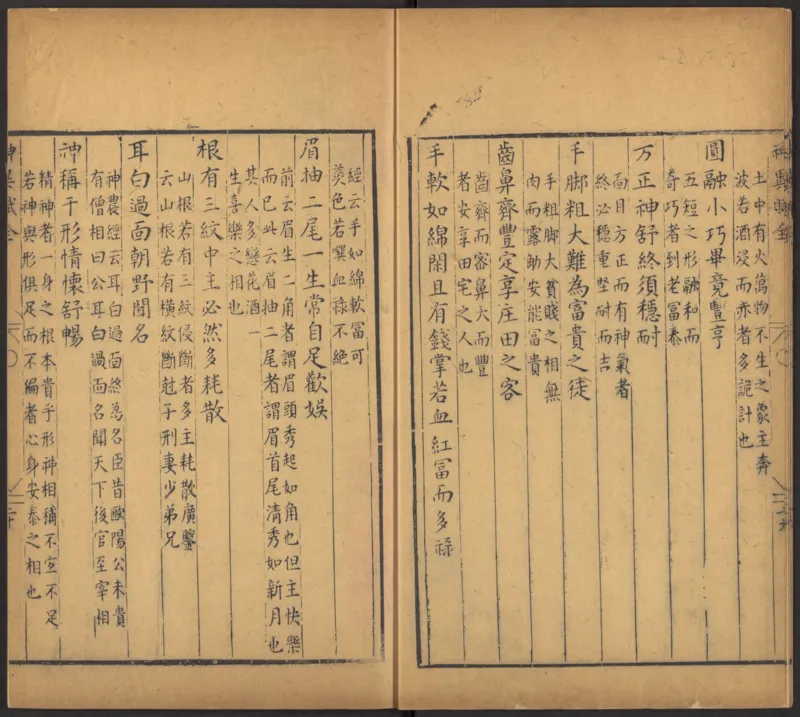 土中有火萬物不生之象主奔
波若酒浸而赤者多詭計也
圓融小巧畢竟豐亨
五短之形融和而
奇巧者到老富泰
方正神舒終須穩耐
面目方正而有神氣者
終必穩重堅耐而吉
手脚粗大難為富貴之徒
手粗脚大貧賤之相無
肉而露筋安能富貴
齒鼻齊豐定享庄田之客
齒齊而密鼻大而豐
者安享田宅之人也
手軟如綿閑且有錢掌若血紅富而多祿
經云手如綿軟富可
羡色若噀血祿不絶
眉抽二尾一生常自足歡娛
前云眉生二角者謂眉頭秀起如角也但主快樂
而已此云眉抽二尾者謂眉首尾清秀如新月也
其人多戀花酒一
生喜樂之相也
根有三紋中主必然多耗散
山根若有三紋侵斷者多主耗散廣鑒
云山根若有橫紋斷尅子刑妻少弟兄
耳白過面朝野聞名
神農經云耳白過面終為名臣昔歐陽公未貴
有僧相曰公耳白過面名聞天下後官至宰相
神稱于形情懷舒暢
精神者一身之根本貴乎形神相稱不宜不足
若神與形俱足而不偏者心身安泰之相也